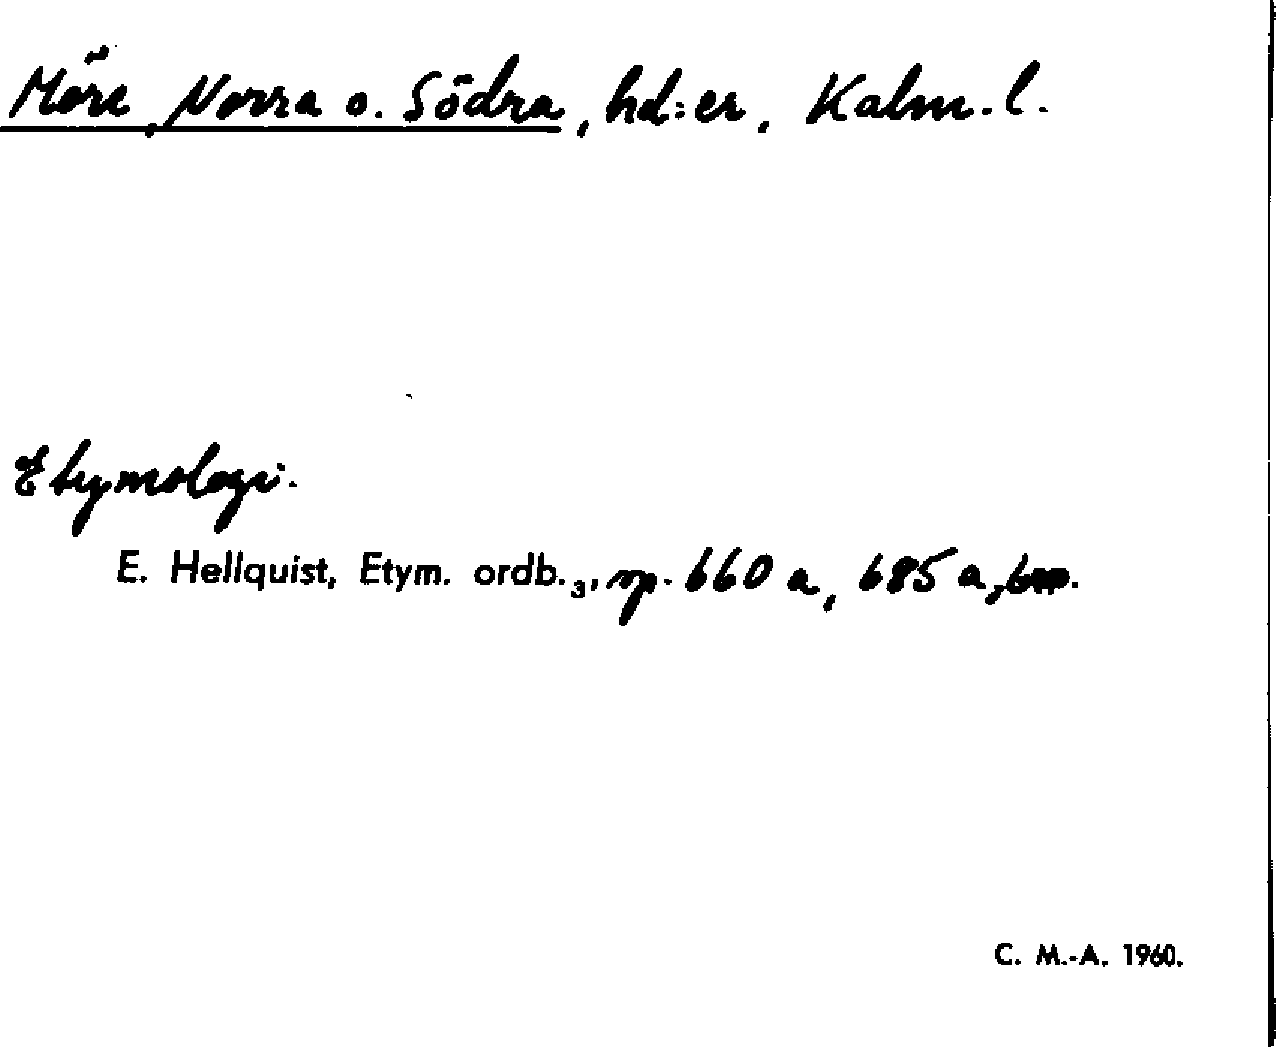 Möre, Norra o. Södra, hd:er, Kalm. l.
Etymologi.
E. Hellquist, Etym. ordb.3, sp. 660 a, 685 a,
C. M.-A. 1960.